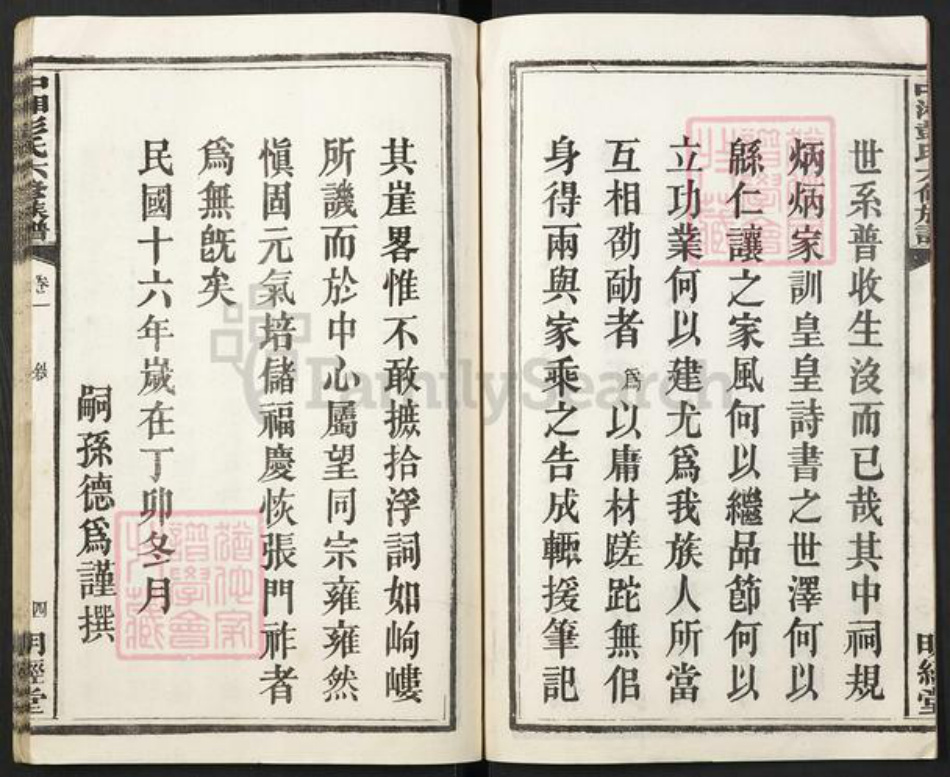 世系普收生沒而已哉其中祠規
炳炳家訓皇皇詩書之世澤何以
緜仁讓之家風何以繼品節何以
立功業何以建尤爲我族人所當
互相劭勖者爲以庸材蹉跎無侶
身得兩與家乘之告成輒援筆記
明經堂
其崖畧惟不敢摭拾浮詞如岣嶁
所譏而於中心屬望同宗雍雍然
愼固元氣培儲福慶恢張門祚者
爲無旣矣
民國十六年歲在丁卯冬月
嗣孫德爲謹撰
中湘彭氏六修族譜
卷一
四
明經堂
FamilySearch